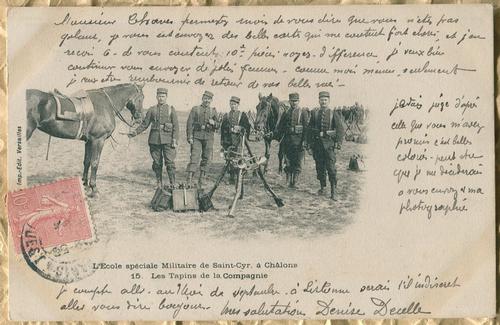 Monsieur permettez moi de vous dire que vous n'etes pas
galant, je vous ai envoyez des belles cartes qui me coutent fort cheres, et j'en
recois 6 de vous coutent 10c pièce voyez difference, je veux bien
continuer vous envoyer de jolies femmes comme mois meme seulement
je veux etre rembourser de retour de vos belles
j'etais juge d'après
celle que vous m'avez
promis c'est belles
colorés peut etre
que je me deciderai
a vous envoyer ma
photographie
Imp.-Edit. Versailles
L'Ecole spéciale Militaire de Saint-Cyr. à Châlons
15. Les Tapins de la Compagnie
Je compte aller au Mois de septembre à serais t'il indiscret
aller vous dire bonjour. Mes salutations Denise Decelle